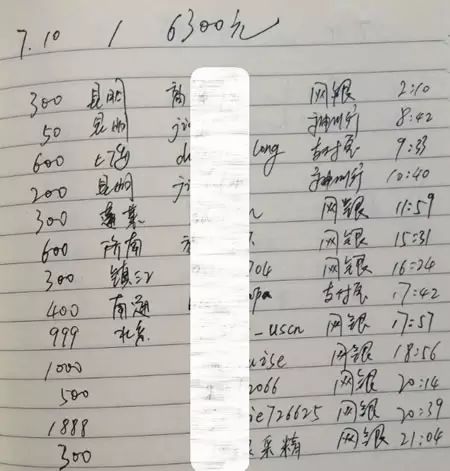 7.10 1 6300元
300 昆明 网银 2:10
50 昆明 ji 神州行 8:42
600 上海 du long 支付宝 9:33
200 昆明 ji 神州行 10:40
300 n 网银 11:59
600 济南 网银 15:31
300 镇江 704 网银 16:24
400 南通 opa 支付宝 17:42
999 北京 _uscn 网银 17:57
1000 uise 网银 18:56
500 2066 网银 20:14
1888 ie726625 网银 20:39
300 采精 网银 21:04